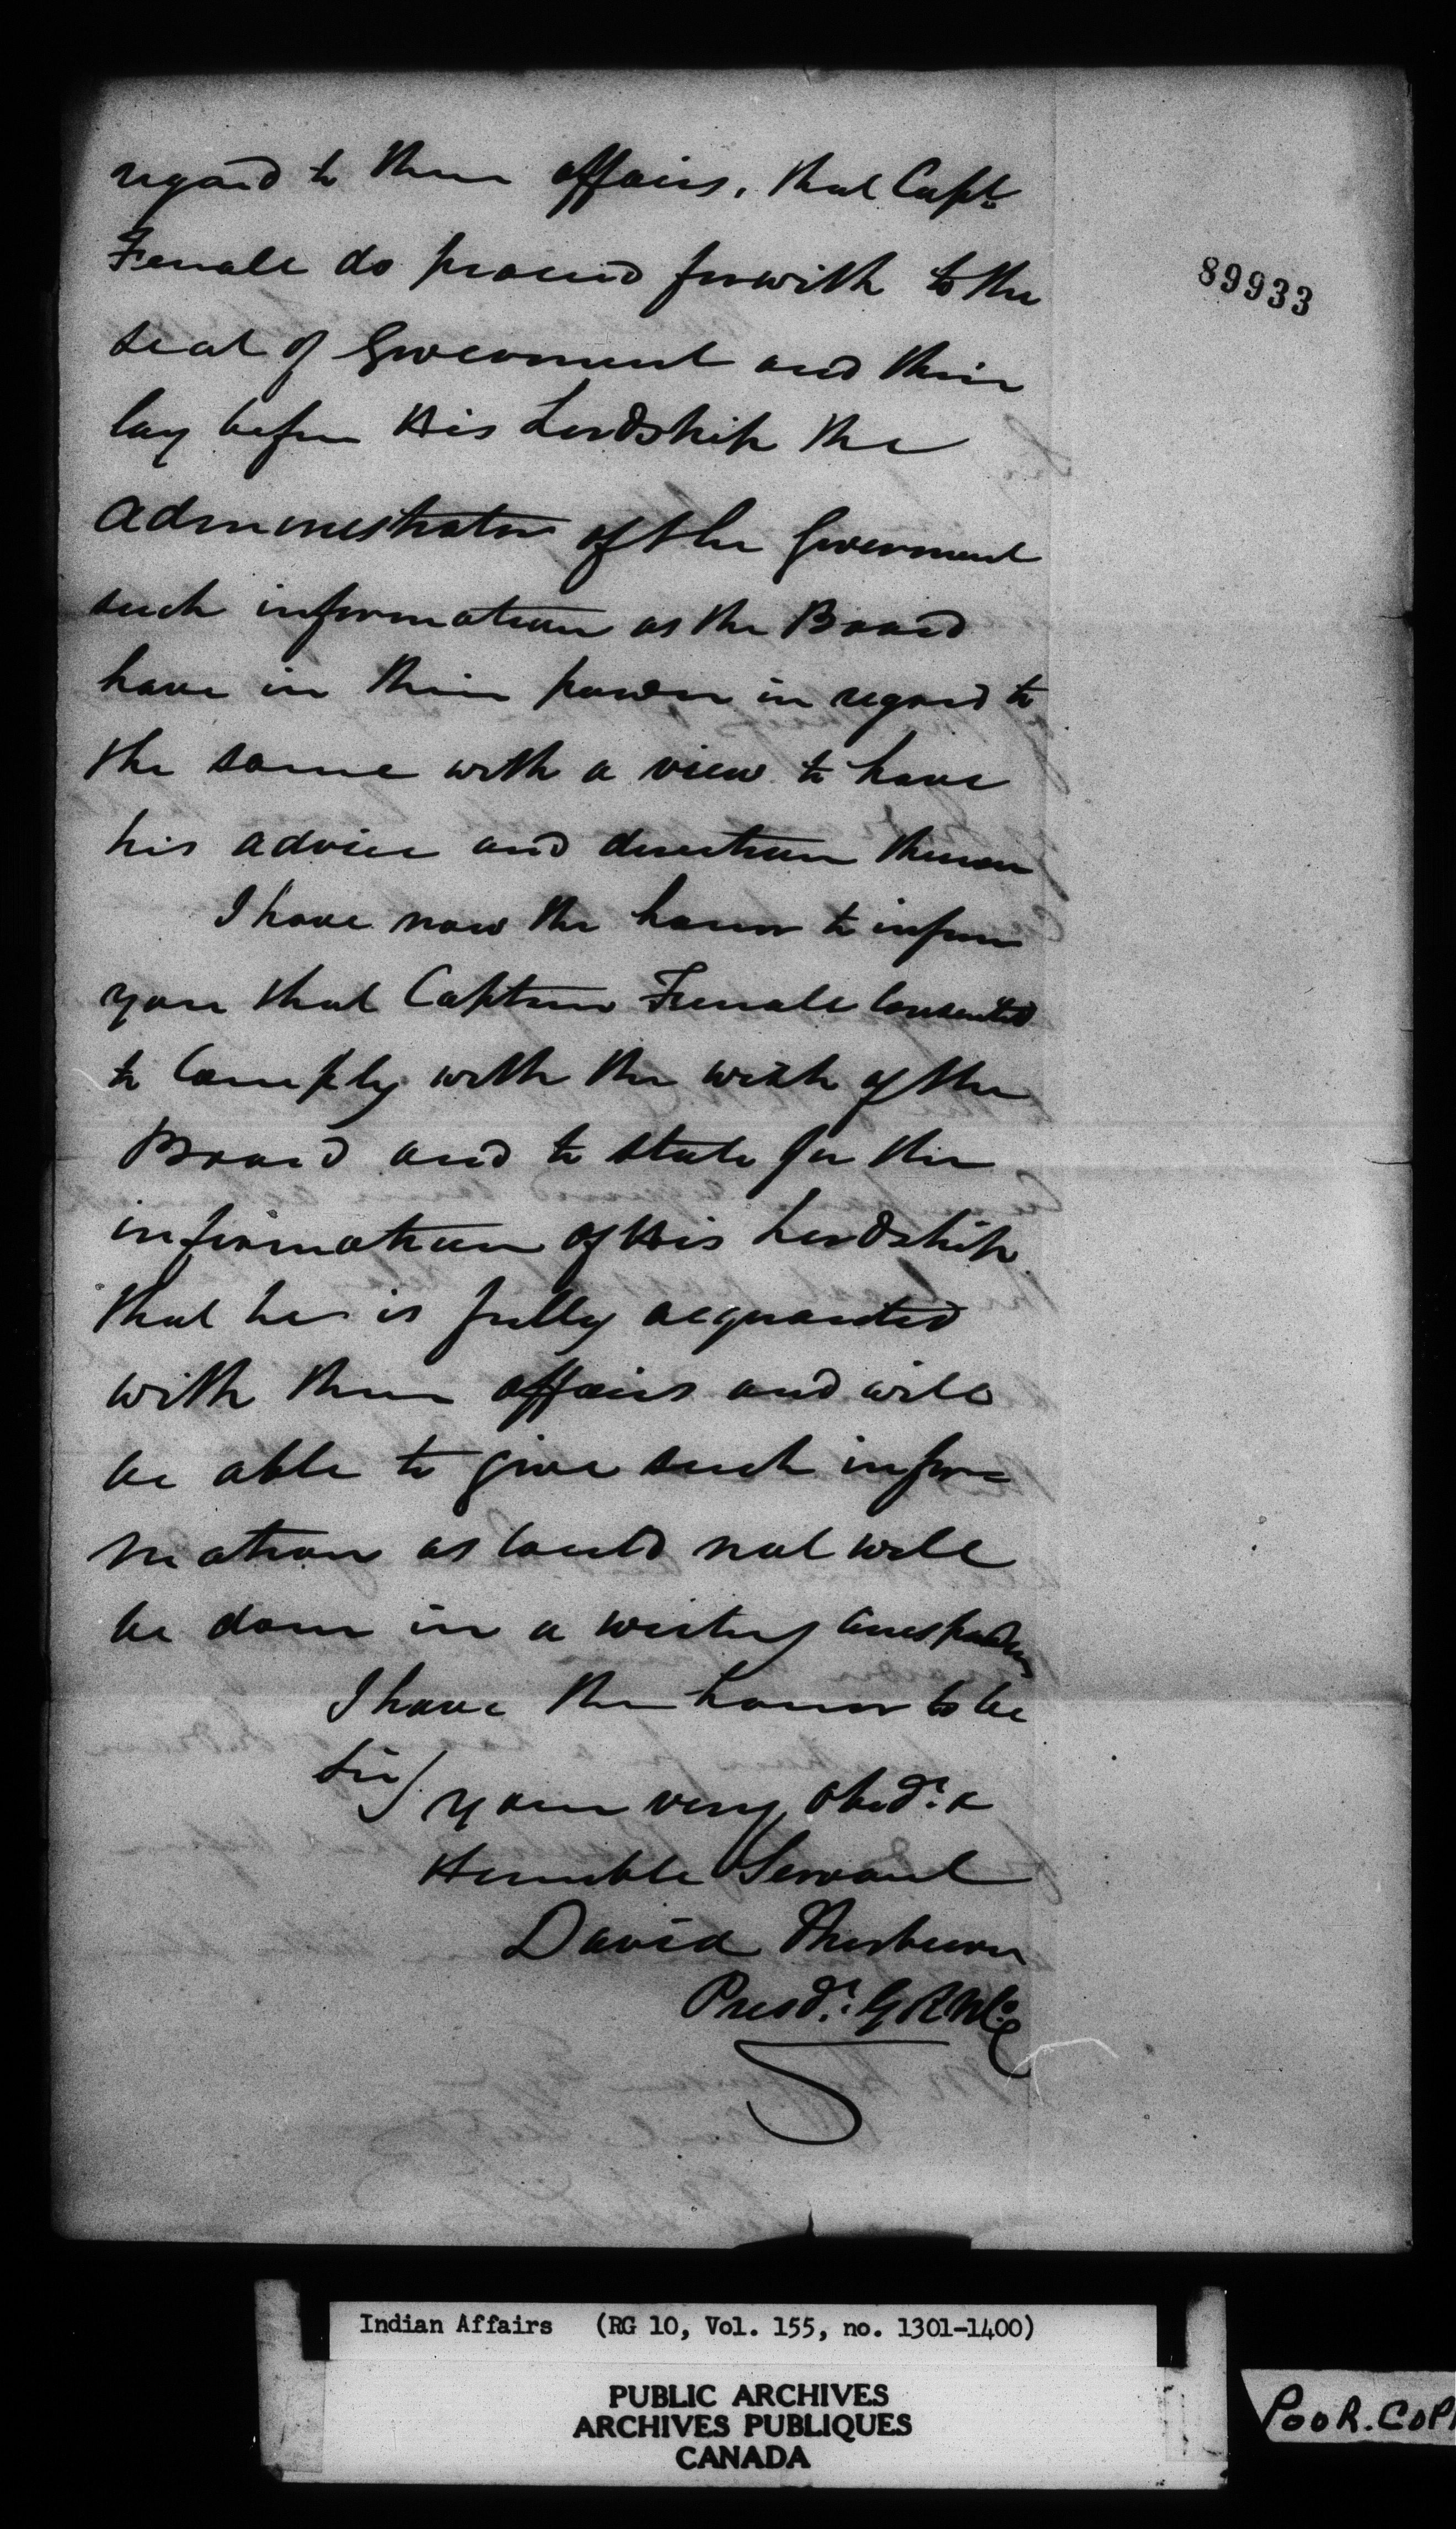 regard to their affairs, that Capt.
Fenale do proceed forwith to the
seat of Goverment and their
lay before His Lordship the
Administrator of the Goverment
such information as the Board
have in their power in regard to
the same with a view to have
his advice and direction thereon
I have now the honor to inform
you that Captain Fenale consented
to comply with the wish of the
Board and to state for the
information of His Lordship
that he is fully acquanted
with their affairs and will
be able to give such infor=
mation as could not well
be done in a writing
I have the honor to be
Sir/
your very obedt. &
Humble Servant
David Thorburn
Presdt. G R N Co.
89933
Indian Affairs (RG 10, Vol. 155, no. 1301-1400)
PUBLIC ARCHIVES
ARCHIVES PUBLIQUES
CANADA
POOR.COP